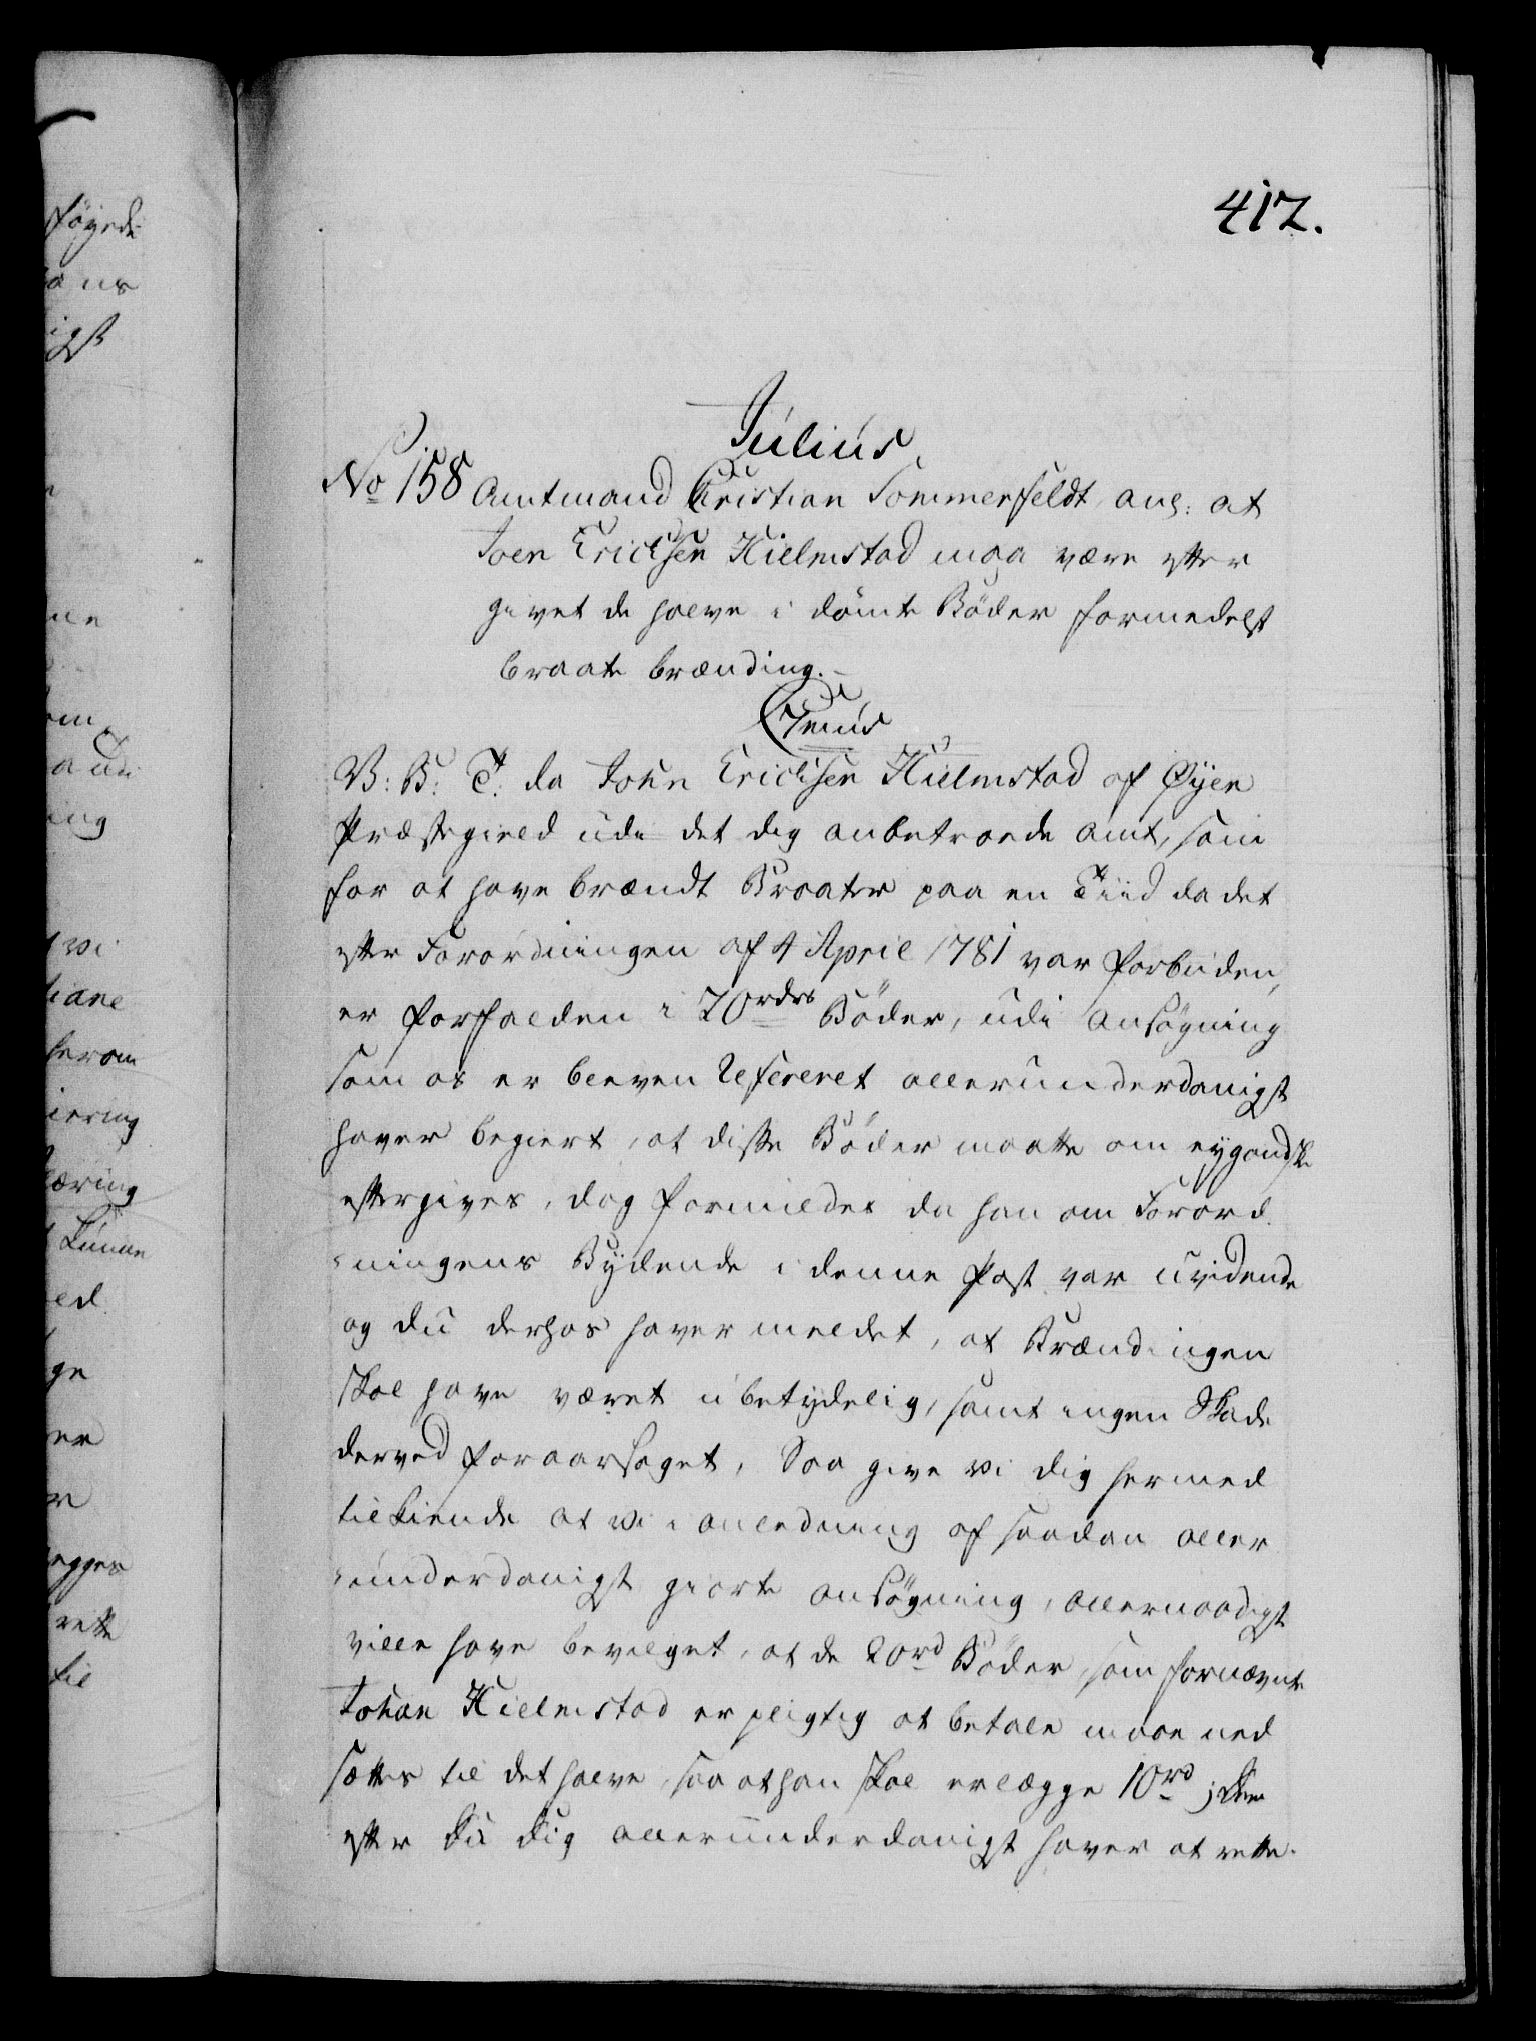 412.
Julius
No 158 Amtmand Christian Sommerfeldt, ang: at
Joen Erichsen Hielmstad maa være efter
givet de halve i dömte Böder formedelst
braate brænding.
Genus
V: B: T: da John Erichsen Hielmstad af Øyer
Præstegield udi det dig anbetroede Amt, som
for at have brændt Braater paa en Tiid da det
efter Forordningen af 4 April 1781 var forbuden,
er forfalden i 20rdrs Böder, udi Ansögning
som os er bleven Refereret allerunderdanigst
haver begiert, at disse Böder maatte om ey gandske
eftergives, dog formildes da han om Forord
-ningens Bydende i denne Post var uvidende
og du derhos haver meldet, at Brændingen
skal have været ubetydelig, samt ingen Skade
derved foraarsaget, Saa give vi dig hermed
tilkiende at vi i anledning af saadan aller
-underdanigst giorte ansögning, allernaadigst
ville have bevilget, at de 20rd Böder, som fornævnte
Johan Hielmstad er pligtig at betale maae ned
sættes til det halve, saa at han skal erlægge 10rd; Der
efter du dig allerunderdanigst haver at rette.
föyede
ans
igst
ne
em
ing
vi
iane
herom
iering
æring
kunne
ed
ge
er
r
egges
rette
til